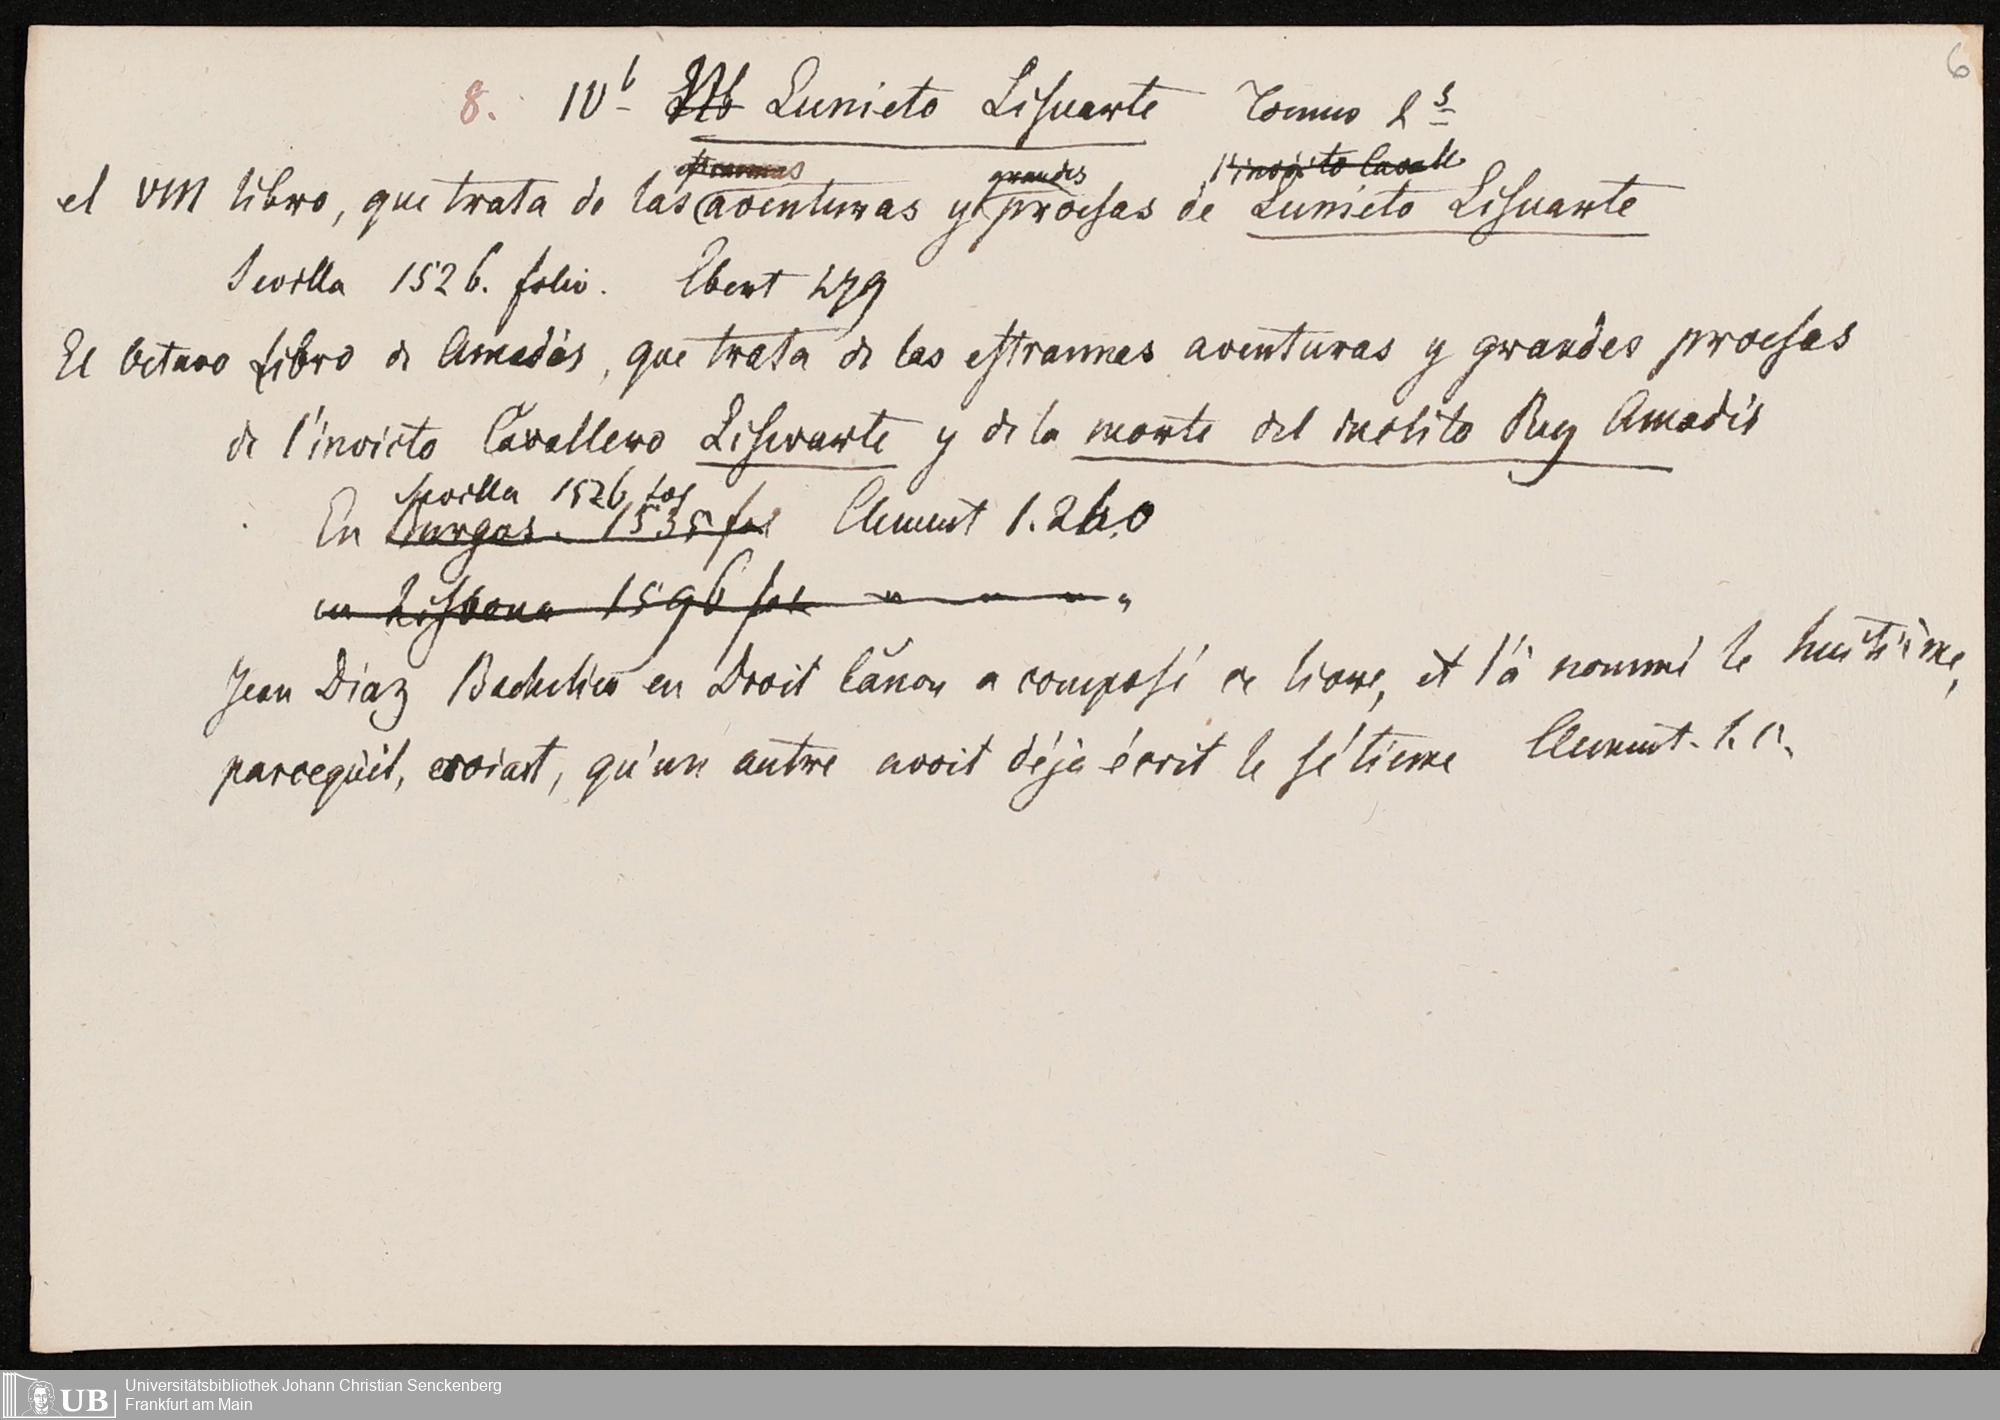 6
8. IVb Lunieto Lisuarte Tomus 2s
estrannas grandes l'invicto Cavall
el VIII libro, que trata de las aventuras y proesas de Lunieto Lisuarte
Sevilla 1526. folio. Ebert 479
El Octavo Libro de Amadis, que trata de las estrannas aventuras y grandes proesas
de l'invicto Cavallero Lisuarte y de la morte del inclito Rey Amadis
Sevilla 1526 fol
En Burgos. 1535 fol Clement 1.240
en Lisbona 1596 fol " " " "
Jean Diaz Bachelier en Droit Canon a composé ce livre, et l'a nommé le huitiéme,
parcequ'il, croiait, qu'un autre avoit déja écrit le sétieme Clement. l. c.
UB Universitätsbibliothek Johann Christian Senckenberg
Frankfurt am Main